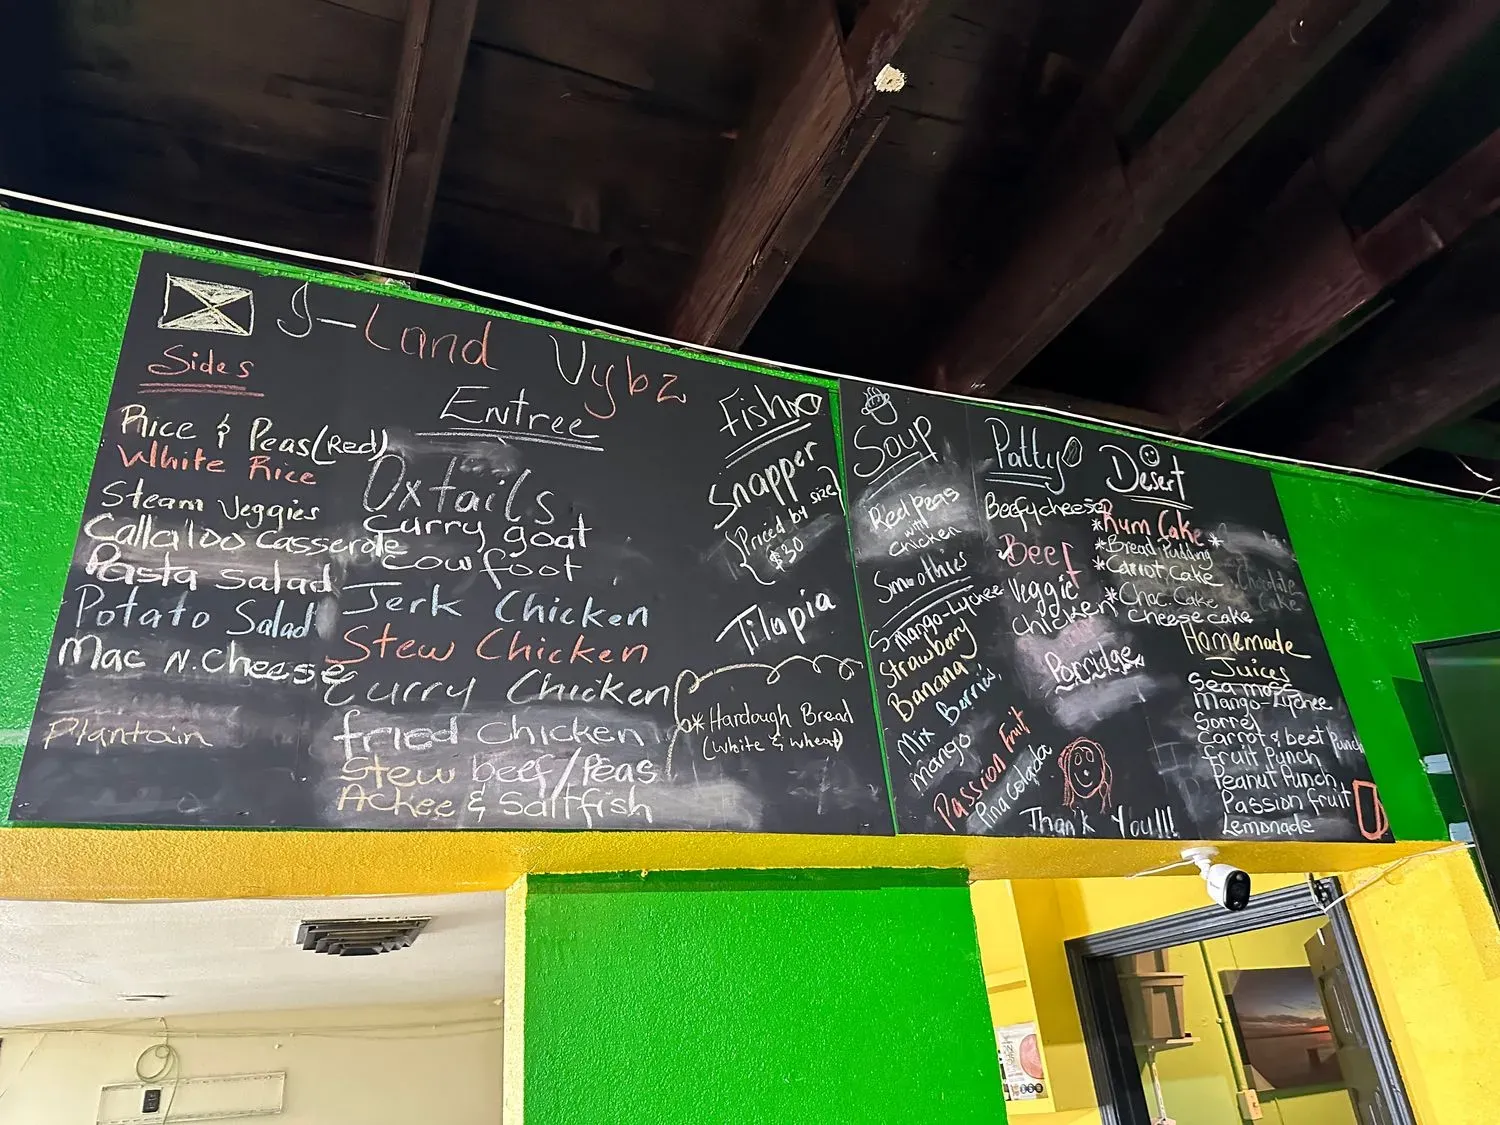 I-Land Vybz
Sides
Rice & Peas (Red)
White Rice
Steam Veggies
Callaloo Casserole
Pasta Salad
Potato Salad
Mac N. Cheese
Plantain
Entree
Oxtails
Curry goat
Cow foot
Jerk Chicken
Stew Chicken
Curry Chicken
fried Chicken
Stew beef/Peas
Ackee & Saltfish
Fish
Snapper
(Priced by size)
$30
Tilapia
* Hardough Bread
(White & Wheat)
Soup
Red Peas
with
Chicken
Smoothies
Mango-Lychee
Strawberry
Banana
Mix Berries
Mango
Passion Fruit
Pina Colada
Patty
Beef & cheese
Beef
Veggie
Chicken
Porridge
Thank You!!!
Desert
*Rum Cake*
*Bread Pudding
*Carrot Cake
*Choc. Cake
Cheese cake
Chocolate
Cake
Homemade
Juices
Sea moss
Mango-Lychee
Sorrel
Carrot & beet Punch
fruit Punch
Peanut Punch
Passion fruit
Lemonade